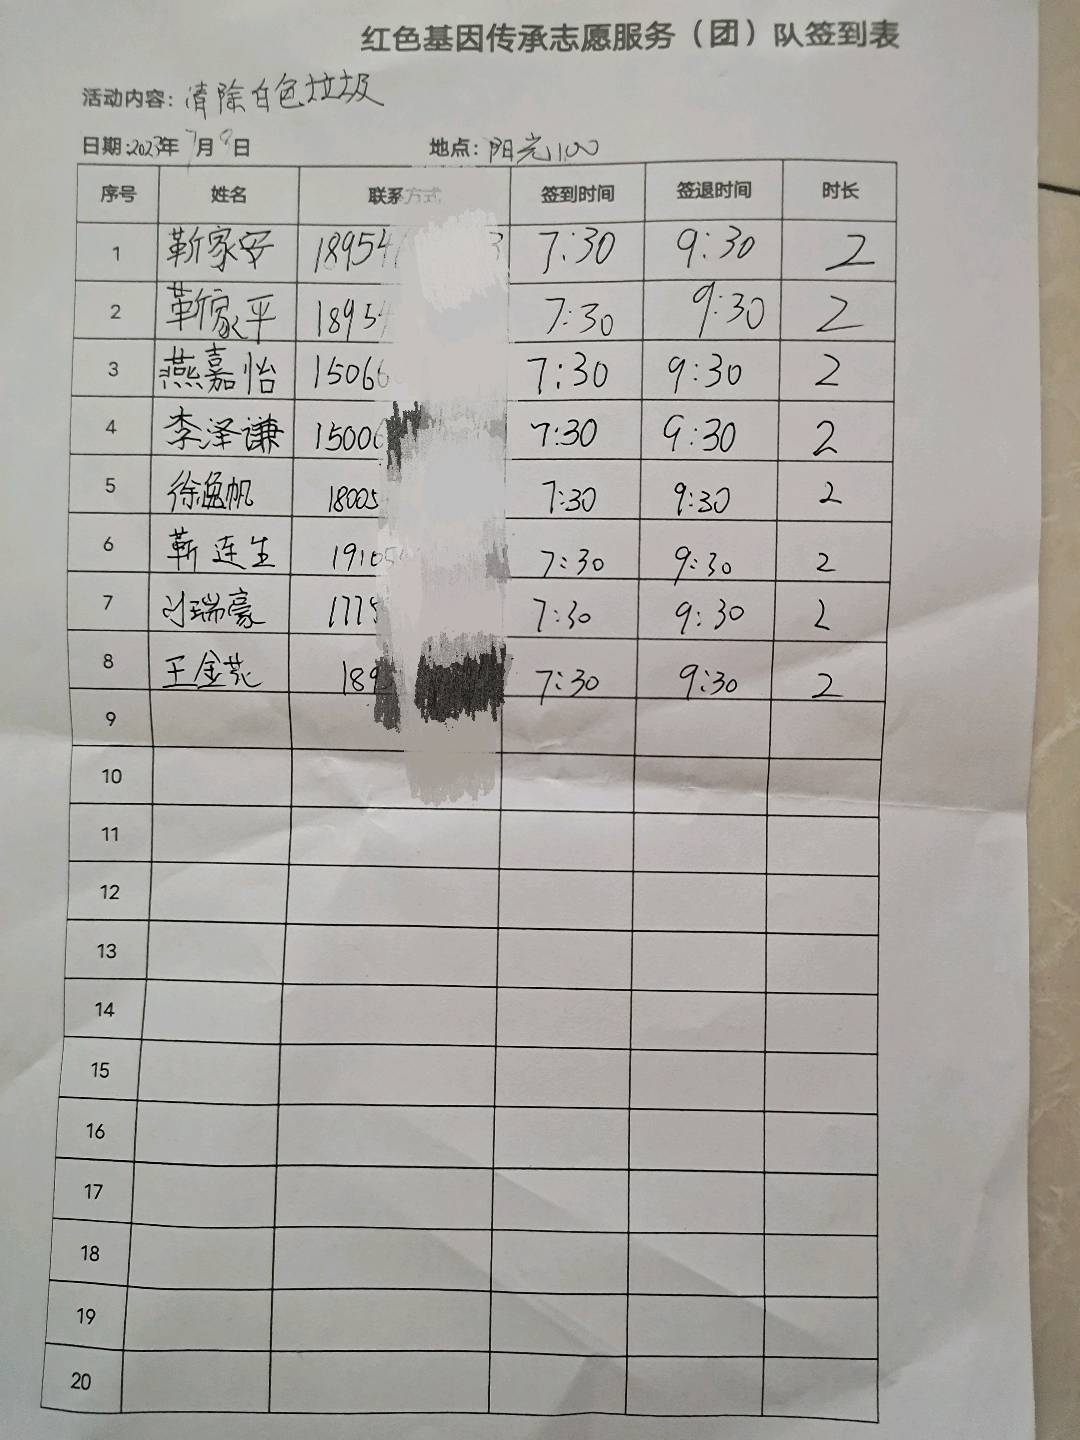 红色基因传承志愿服务（团）队签到表
活动内容：清除白色垃圾
日期：2023年7月9日 地点：阳光100
序号 姓名 联系方式 签到时间 签退时间 时长
1 靳家安 18954 3 7:30 9:30 2
2 靳家平 1895 7:30 9:30 2
3 燕嘉怡 15066 7:30 9:30 2
4 李泽谦 15006 7:30 9:30 2
5 徐逸帆 18005 7:30 9:30 2
6 靳连生 19105 7:30 9:30 2
7 刘瑞豪 1775 7:30 9:30 2
8 王金苑 189 7:30 9:30 2
9
10
11
12
13
14
15
16
17
18
19
20